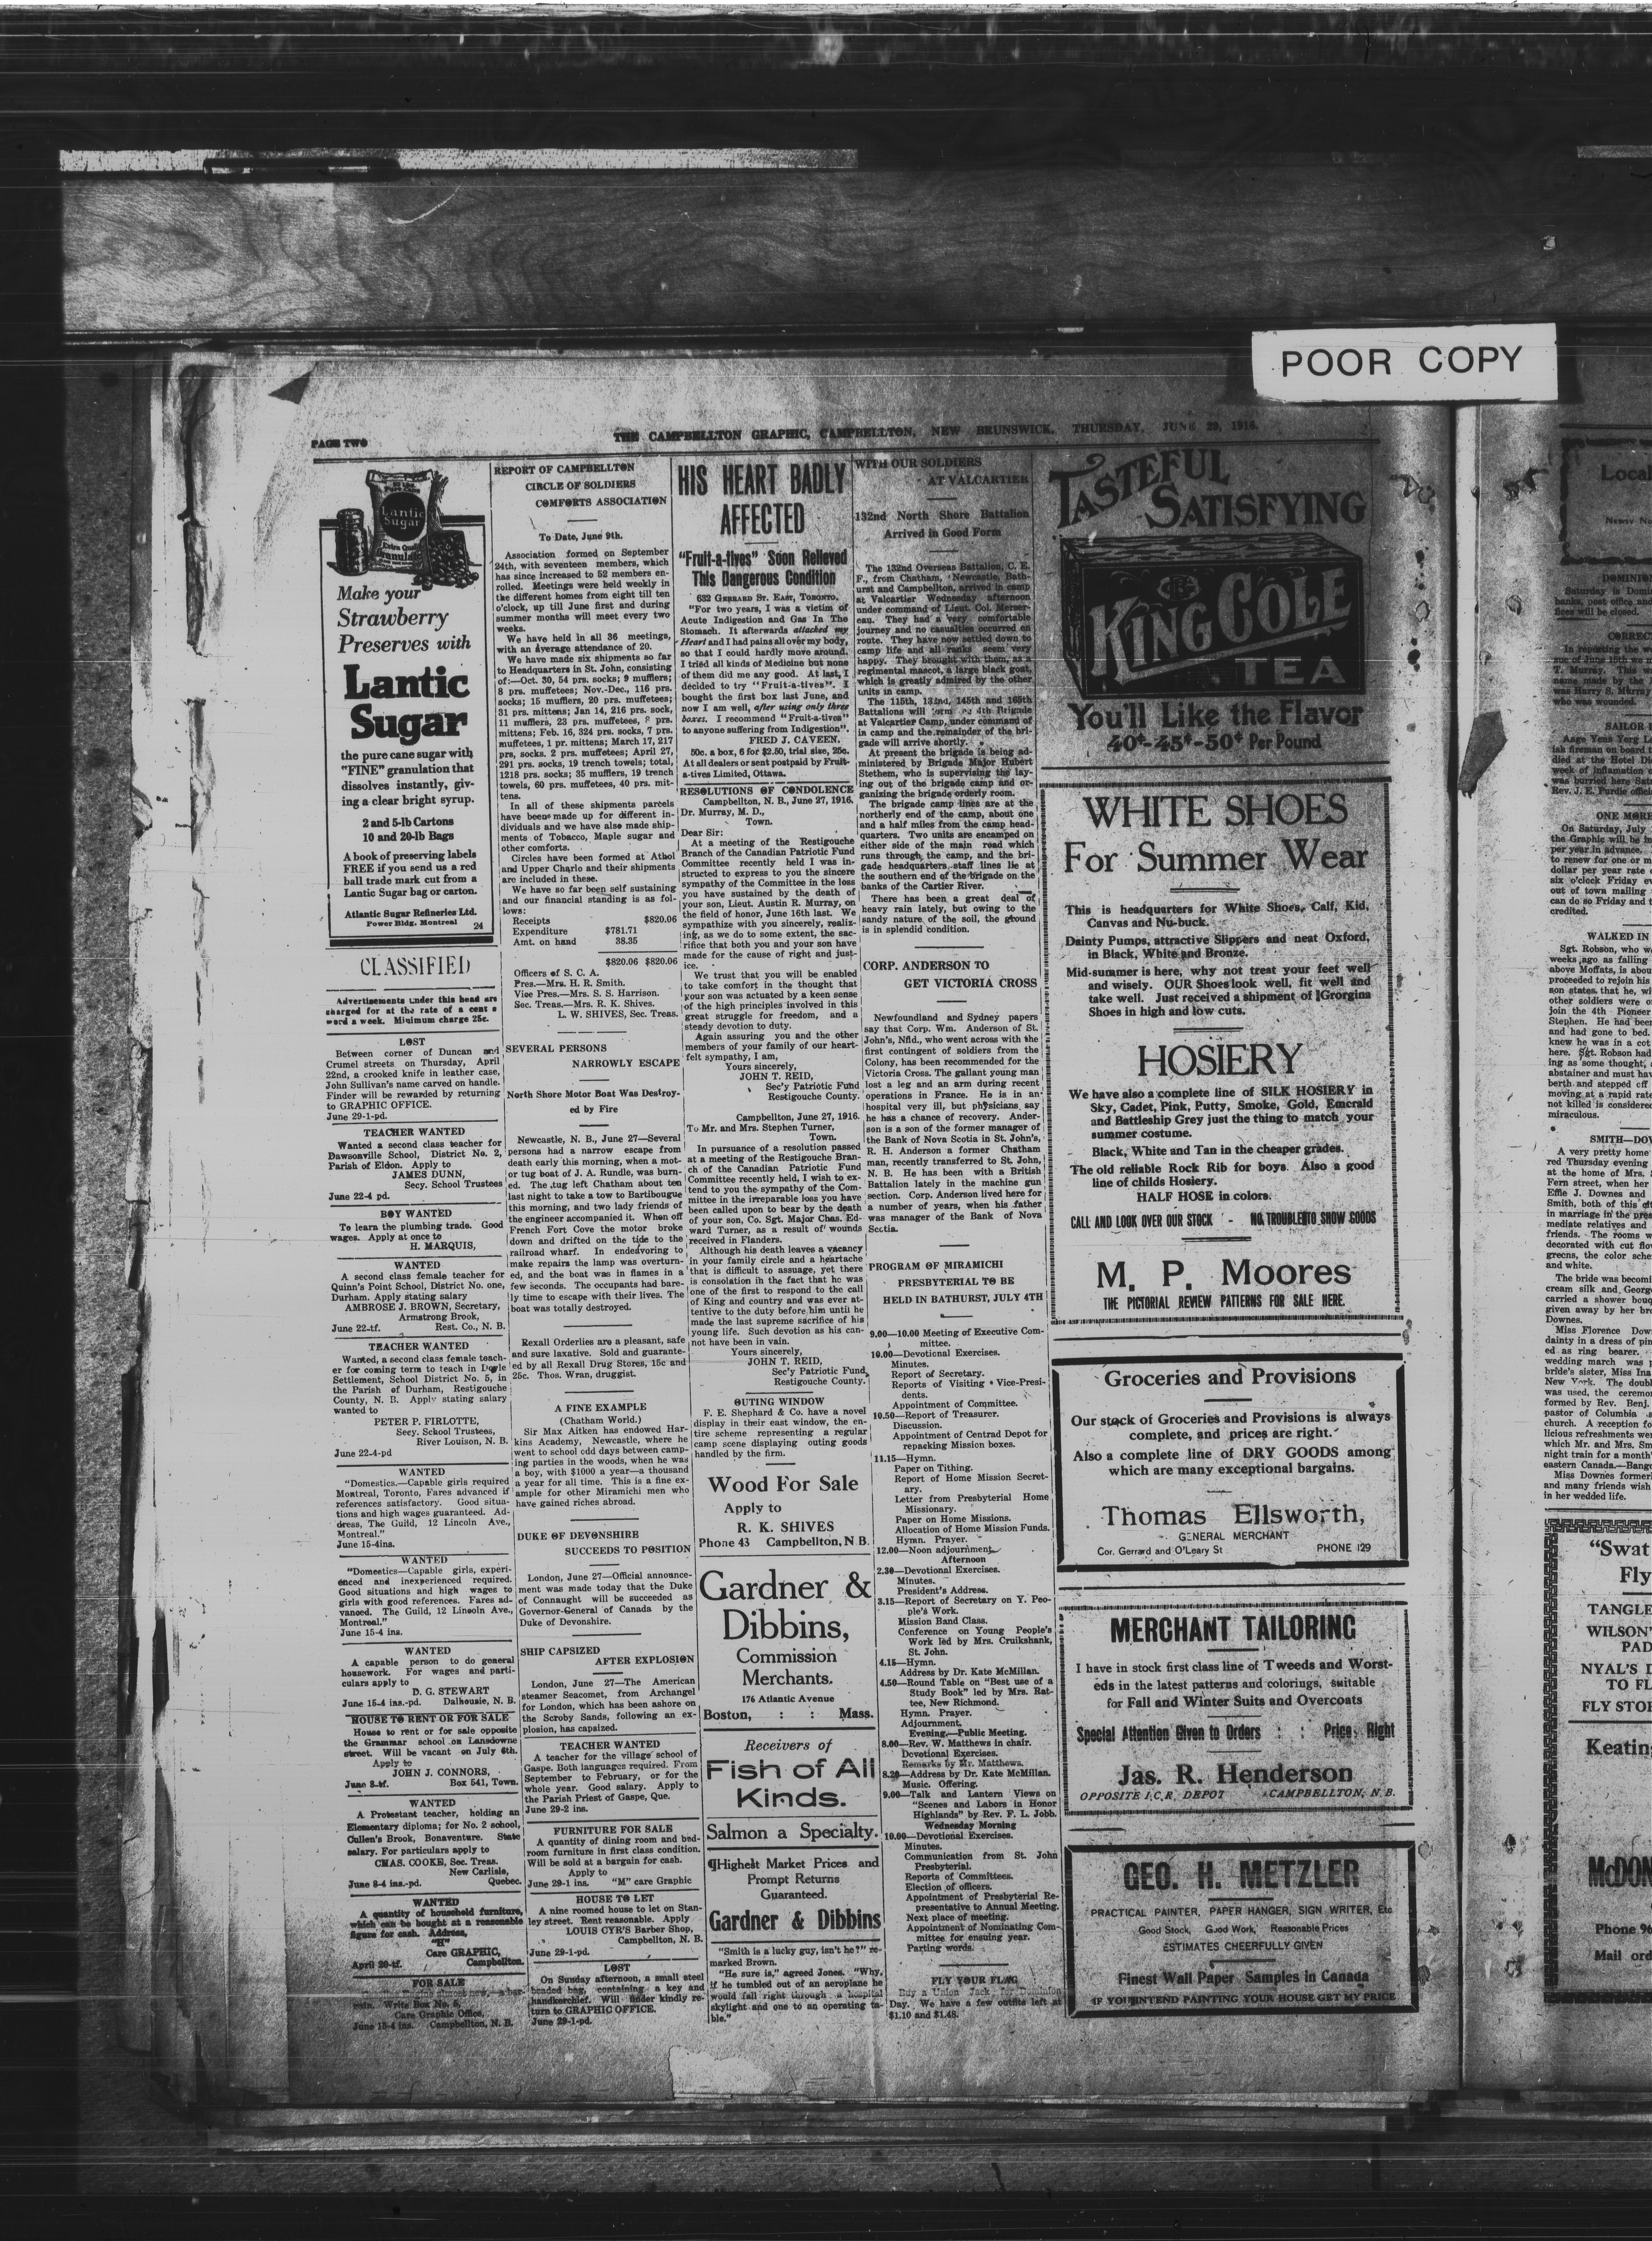 POOR COPY
PAGE TWO
THE CAMPBELLTON GRAPHIC, CAMPBELLTON, NEW BRUNSWICK, THURSDAY, JUNE 29, 1916.
Lantic
Sugar
Extra Quality
Granulated
Make your
Strawberry
Preserves with
Lantic
Sugar
the pure cane sugar with
"FINE" granulation that
dissolves instantly, giv-
ing a clear bright syrup.
2 and 5-lb Cartons
10 and 20-lb Bags
A book of preserving labels
FREE if you send us a red
ball trade mark cut from a
Lantic Sugar bag or carton.
Atlantic Sugar Refineries Ltd.
Power Bldg. Montreal 24
CLASSIFIED
Advertisements under this head are
charged for at the rate of a cent a
word a week. Minimum charge 25c.
LOST
Between corner of Duncan and
Crumel streets on Thursday, April
22nd, a crooked knife in leather case,
John Sullivan's name carved on handle.
Finder will be rewarded by returning
to GRAPHIC OFFICE.
June 29-1-pd.
TEACHER WANTED
Wanted a second class teacher for
Dawsonville School, District No. 2,
Parish of Eldon. Apply to
JAMES DUNN,
Secy. School Trustees
June 22-4 pd.
BOY WANTED
To learn the plumbing trade. Good
wages. Apply at once to
H. MARQUIS,
WANTED
A second class female teacher for
Quinn's Point School, District No. one,
Durham. Apply stating salary
AMBROSE J. BROWN, Secretary,
Armstrong Brook,
June 22-tf. Rest. Co., N. B.
TEACHER WANTED
Wanted, a second class female teach-
er for coming term to teach in Doyle
Settlement, School District No. 5, in
the Parish of Durham, Restigouche
County, N. B. Apply stating salary
wanted to
PETER P. FIRLOTTE,
Secy. School Trustees,
River Louison, N. B.
June 22-4-pd
WANTED
"Domestics.—Capable girls required
Montreal, Toronto, Fares advanced if
references satisfactory. Good situa-
tions and high wages guaranteed. Ad-
dress, The Guild, 12 Lincoln Ave.,
Montreal."
June 15-4ins.
WANTED
"Domestics—Capable girls, experi-
enced and inexperienced required.
Good situations and high wages to
girls with good references. Fares ad-
vanced. The Guild, 12 Lincoln Ave.,
Montreal."
June 15-4 ins.
WANTED
A capable person to do general
housework. For wages and parti-
culars apply to
D. G. STEWART
June 15-4 ins.-pd. Dalhousie, N. B.
HOUSE TO RENT OR FOR SALE
House to rent or for sale opposite
the Grammar school on Lansdowne
street. Will be vacant on July 6th.
Apply to
JOHN J. CONNORS,
June 8-tf. Box 541, Town.
WANTED
A Protestant teacher, holding an
Elementary diploma; for No. 2 school,
Cullen's Brook, Bonaventure. State
salary. For particulars apply to
CHAS. COOKE, Sec. Treas.
New Carlisle,
June 8-4 ins.-pd. Quebec.
WANTED
A quantity of household furniture,
which can be bought at a reasonable
figure for cash. Address,
"H"
Care GRAPHIC,
April 20-tf. Campbellton.
FOR SALE
Write Box No. 5,
Care Graphic Office,
June 15-4 ins. Campbellton, N. B.
REPORT OF CAMPBELLTON
CIRCLE OF SOLDIERS
COMFORTS ASSOCIATION
To Date, June 9th.
Association formed on September
24th, with seventeen members, which
has since increased to 52 members en-
rolled. Meetings were held weekly in
the different homes from eight till ten
o'clock, up till June first and during
summer months will meet every two
weeks.
We have held in all 36 meetings,
with an average attendance of 20.
We have made six shipments so far
to Headquarters in St. John, consisting
of:—Oct. 30, 54 prs. socks; 9 mufflers;
8 prs. muffetees; Nov.-Dec., 116 prs.
socks; 15 mufflers, 20 prs. muffetees;
31 prs. mittens; Jan 14, 216 prs. sock,
11 mufflers, 23 prs. muffetees, 8 prs.
mittens; Feb. 16, 324 prs. socks, 7 prs.
muffetees, 1 pr. mittens; March 17, 217
prs. socks. 2 prs. muffetees; April 27,
291 prs. socks, 19 trench towels; total,
1218 prs. socks; 35 mufflers, 19 trench
towels, 60 prs. muffetees, 40 prs. mit-
tens.
In all of these shipments parcels
have been made up for different in-
dividuals and we have also made ship-
ments of Tobacco, Maple sugar and
other comforts.
Circles have been formed at Athol
and Upper Charlo and their shipments
are included in these.
We have so far been self sustaining
and our financial standing is as fol-
lows:
Receipts $820.06
Expenditure $781.71
Amt. on hand 38.35
$820.06 $820.06
Officers of S. C. A.
Pres.—Mrs. H. R. Smith.
Vice Pres.—Mrs. S. S. Harrison.
Sec. Treas.—Mrs. R. K. Shives.
L. W. SHIVES, Sec. Treas.
SEVERAL PERSONS
NARROWLY ESCAPE
North Shore Motor Boat Was Destroy-
ed by Fire
Newcastle, N. B., June 27—Several
persons had a narrow escape from
death early this morning, when a mot-
or tug boat of J. A. Rundle, was burn-
ed. The tug left Chatham about ten
last night to take a tow to Bartibougue
this morning, and two lady friends of
the engineer accompanied it. When off
French Fort Cove the motor broke
down and drifted on the tide to the
railroad wharf. In endeavoring to
make repairs the lamp was overturn-
ed, and the boat was in flames in a
few seconds. The occupants had bare-
ly time to escape with their lives. The
boat was totally destroyed.
Rexall Orderlies are a pleasant, safe
and sure laxative. Sold and guarante-
ed by all Rexall Drug Stores, 15c and
25c. Thos. Wran, druggist.
A FINE EXAMPLE
(Chatham World.)
Sir Max Aitken has endowed Har-
kins Academy, Newcastle, where he
went to school odd days between camp-
ing parties in the woods, when he was
a boy, with $1000 a year—a thousand
a year for all time. This is a fine ex-
ample for other Miramichi men who
have gained riches abroad.
DUKE OF DEVONSHIRE
SUCCEEDS TO POSITION
London, June 27—Official announce-
ment was made today that the Duke
of Connaught will be succeeded as
Governor-General of Canada by the
Duke of Devonshire.
SHIP CAPSIZED
AFTER EXPLOSION
London, June 27—The American
steamer Seacomet, from Archangel
for London, which has been ashore on
the Scroby Sands, following an ex-
plosion, has capsized.
TEACHER WANTED
A teacher for the village school of
Gaspe. Both languages required. From
September to February, or for the
whole year. Good salary. Apply to
the Parish Priest of Gaspe, Que.
June 29-2 ins.
FURNITURE FOR SALE
A quantity of dining room and bed-
room furniture in first class condition.
Will be sold at a bargain for cash.
Apply to
June 29-1 ins. "M" care Graphic
HOUSE TO LET
A nine roomed house to let on Stan-
ley street. Rent reasonable. Apply
LOUIS CYR'S Barber Shop,
Campbellton, N. B.
June 29-1-pd.
LOST
On Sunday afternoon, a small steel
beaded bag, containing a key and
handkerchief. Will finder kindly re-
turn to GRAPHIC OFFICE.
June 29-1-pd.
HIS HEART BADLY
AFFECTED
"Fruit-a-tives" Soon Relieved
This Dangerous Condition
632 GERRARD ST. EAST, TORONTO.
"For two years, I was a victim of
Acute Indigestion and Gas In The
Stomach. It afterwards attacked my
Heart and I had pains all over my body,
so that I could hardly move around.
I tried all kinds of Medicine but none
of them did me any good. At last, I
decided to try "Fruit-a-tives". I
bought the first box last June, and
now I am well, after using only three
boxes. I recommend "Fruit-a-tives"
to anyone suffering from Indigestion".
FRED J. CAVEEN.
50c. a box, 6 for $2.50, trial size, 25c.
At all dealers or sent postpaid by Fruit-
a-tives Limited, Ottawa.
RESOLUTIONS OF CONDOLENCE
Campbellton, N. B., June 27, 1916.
Dr. Murray, M. D.,
Town.
Dear Sir:
At a meeting of the Restigouche
Branch of the Canadian Patriotic Fund
Committee recently held I was in-
structed to express to you the sincere
sympathy of the Committee in the loss
you have sustained by the death of
your son, Lieut. Austin R. Murray, on
the field of honor, June 16th last. We
sympathize with you sincerely, realiz-
ing, as we do to some extent, the sac-
rifice that both you and your son have
made for the cause of right and just-
ice.
We trust that you will be enabled
to take comfort in the thought that
your son was actuated by a keen sense
of the high principles involved in this
great struggle for freedom, and a
steady devotion to duty.
Again assuring you and the other
members of your family of our heart-
felt sympathy, I am,
Yours sincerely,
JOHN T. REID,
Sec'y Patriotic Fund
Restigouche County.
Campbellton, June 27, 1916.
To Mr. and Mrs. Stephen Turner,
Town.
In pursuance of a resolution passed
at a meeting of the Restigouche Bran-
ch of the Canadian Patriotic Fund
Committee recently held, I wish to ex-
tend to you the sympathy of the Com-
mittee in the irreparable loss you have
been called upon to bear by the death
of your son, Co. Sgt. Major Chas. Ed-
ward Turner, as a result of wounds
received in Flanders.
Although his death leaves a vacancy
in your family circle and a heartache
that is difficult to assuage, yet there
is consolation in the fact that he was
one of the first to respond to the call
of King and country and was ever at-
tentive to the duty before him until he
made the last supreme sacrifice of his
young life. Such devotion as his can-
not have been in vain.
Yours sincerely,
JOHN T. REID,
Sec'y Patriotic Fund,
Restigouche County.
OUTING WINDOW
F. E. Shephard & Co. have a novel
display in their east window, the en-
tire scene representing a regular
camp scene displaying outing goods
handled by the firm.
Wood For Sale
Apply to
R. K. SHIVES
Phone 43 Campbellton, N B.
Gardner &
Dibbins,
Commission
Merchants.
176 Atlantic Avenue
Boston, : : Mass.
Receivers of
Fish of All
Kinds.
Salmon a Specialty.
¶Highest Market Prices and
Prompt Returns
Guaranteed.
Gardner & Dibbins
"Smith is a lucky guy, isn't he?" re-
marked Brown.
"He sure is," agreed Jones. "Why,
if he tumbled out of an aeroplane he
would fall right through a hospital
skylight and one to an operating ta-
ble."
WITH OUR SOLDIERS
AT VALCARTIER
132nd North Shore Battalion
Arrived in Good Form
The 132nd Overseas Battalion, C. E.
F., from Chatham, Newcastle, Bath-
urst and Campbellton, arrived in camp
at Valcartier Wednesday afternoon
under command of Lieut. Col. Merser-
eau. They had a very comfortable
journey and no casualties occurred en
route. They have now settled down to
camp life and all ranks seem very
happy. They brought with them, as a
regimental mascot, a large black goat,
which is greatly admired by the other
units in camp.
The 115th, 132nd, 145th and 165th
Battalions will form the 4th Brigade
at Valcartier Camp, under command of
in camp and the remainder of the bri-
gade will arrive shortly.
At present the brigade is being ad-
ministered by Brigade Major Hubert
Stethem, who is supervising the lay-
ing out of the brigade camp and or-
ganizing the brigade orderly room.
The brigade camp lines are at the
northerly end of the camp, about one
and a half miles from the camp head-
quarters. Two units are encamped on
either side of the main road which
runs through the camp, and the bri-
gade headquarters staff lines lie at
the southern end of the brigade on the
banks of the Cartier River.
There has been a great deal of
heavy rain lately, but owing to the
sandy nature of the soil, the ground
is in splendid condition.
CORP. ANDERSON TO
GET VICTORIA CROSS
Newfoundland and Sydney papers
say that Corp. Wm. Anderson of St.
John's, Nfld., who went across with the
first contingent of soldiers from the
Colony, has been recommended for the
Victoria Cross. The gallant young man
lost a leg and an arm during recent
operations in France. He is in an
hospital very ill, but physicians say
he has a chance of recovery. Ander-
son is a son of the former manager of
the Bank of Nova Scotia in St. John's,
R. H. Anderson a former Chatham
man, recently transferred to St. John,
N. B. He has been with a British
Battalion lately in the machine gun
section. Corp. Anderson lived here for
a number of years, when his father
was manager of the Bank of Nova
Scotia.
PROGRAM OF MIRAMICHI
PRESBYTERIAL TO BE
HELD IN BATHURST, JULY 4TH
9.00—10.00 Meeting of Executive Com-
mittee.
10.00—Devotional Exercises.
Minutes.
Report of Secretary.
Reports of Visiting Vice-Presi-
dents.
Appointment of Committee.
10.50—Report of Treasurer.
Discussion.
Appointment of Central Depot for
repacking Mission boxes.
11.15—Hymn.
Paper on Tithing.
Report of Home Mission Secret-
ary.
Letter from Presbyterial Home
Missionary.
Paper on Home Missions.
Allocation of Home Mission Funds.
Hymn. Prayer.
12.00—Noon adjournment.
Afternoon
2.30—Devotional Exercises.
Minutes.
President's Address.
3.15—Report of Secretary on Y. Peo-
ple's Work.
Mission Band Class.
Conference on Young People's
Work led by Mrs. Cruikshank,
St. John.
4.15—Hymn.
Address by Dr. Kate McMillan.
4.50—Round Table on "Best use of a
Study Book" led by Mrs. Rat-
tee, New Richmond.
Hymn. Prayer.
Adjournment.
Evening.—Public Meeting.
8.00—Rev. W. Matthews in chair.
Devotional Exercises.
Remarks by Mr. Matthews.
8.20—Address by Dr. Kate McMillan.
Music. Offering.
9.00—Talk and Lantern Views on
"Scenes and Labors in Honor
Highlands" by Rev. F. L. Jobb.
Wednesday Morning
10.00—Devotional Exercises.
Minutes.
Communication from St. John
Presbyterial.
Reports of Committees.
Election of officers.
Appointment of Presbyterial Re-
presentative to Annual Meeting.
Next place of meeting.
Appointment of Nominating Com-
mittee for ensuing year.
Parting words.
FLY YOUR FLAG
Buy a Union Jack for Dominion
Day. We have a few outfits left at
$1.10 and $1.48.
TASTEFUL
SATISFYING
KING COLE
TEA
You'll Like the Flavor
40¢-45¢-50¢ Per Pound
WHITE SHOES
For Summer Wear
This is headquarters for White Shoes, Calf, Kid,
Canvas and Nu-buck.
Dainty Pumps, attractive Slippers and neat Oxford,
in Black, White and Bronze.
Mid-summer is here, why not treat your feet well
and wisely. OUR Shoes look well, fit well and
take well. Just received a shipment of Grorgina
Shoes in high and low cuts.
HOSIERY
We have also a complete line of SILK HOSIERY in
Sky, Cadet, Pink, Putty, Smoke, Gold, Emerald
and Battleship Grey just the thing to match your
summer costume.
Black, White and Tan in the cheaper grades.
The old reliable Rock Rib for boys. Also a good
line of childs Hosiery.
HALF HOSE in colors.
CALL AND LOOK OVER OUR STOCK - NO TROUBLE TO SHOW GOODS
M. P. Moores
THE PICTORIAL REVIEW PATTERNS FOR SALE HERE.
Groceries and Provisions
Our stock of Groceries and Provisions is always
complete, and prices are right.
Also a complete line of DRY GOODS among
which are many exceptional bargains.
Thomas Ellsworth,
GENERAL MERCHANT
Cor. Gerrard and O'Leary St PHONE 129
MERCHANT TAILORING
I have in stock first class line of Tweeds and Worst-
eds in the latest patterns and colorings, suitable
for Fall and Winter Suits and Overcoats
Special Attention Given to Orders : : Price Right
Jas. R. Henderson
OPPOSITE I.C.R. DEPOT CAMPBELLTON, N. B.
GEO. H. METZLER
PRACTICAL PAINTER, PAPER HANGER, SIGN WRITER, Etc
Good Stock, Good Work, Reasonable Prices
ESTIMATES CHEERFULLY GIVEN
Finest Wall Paper Samples in Canada
IF YOU INTEND PAINTING YOUR HOUSE GET MY PRICE
Local
Newsy
DOMINION
Saturday is Domin
banks, post office and
fices will be closed.
CORREC
In reporting the w
sue of June 15th we
T. Murray. This w
name made by the
was Harry S. Murray
who was wounded.
SAILOR
Aage Yens Yerg
ish fireman on board
died at the Hotel Di
week of inflamation
was burried here Sat
Rev. J. E. Purdie offici
ONE MORE
On Saturday, July
the Graphic will be in
per year in advance.
to renew for one or m
dollar per year rate
six o'clock Friday ev
out of town mailing
can do so Friday and
credited.
WALKED IN
Sgt. Robson, who w
weeks ago as falling
above Moffats, is abou
proceeded to rejoin his
son states that he, wi
other soldiers were o
join the 4th Pioneer
Stephen. He had been
and had gone to bed.
knew he was in a cot
here. Sgt. Robson had
ing as some thought,
abstainer and must hav
berth and stepped off
moving at a rapid rate
not killed is considere
miraculous.
SMITH—DOW
A very pretty home
red Thursday evening
at the home of Mrs.
Fern street, when her
Effie J. Downes and
Smith, both of this
in marriage in the pres
mediate relatives and
friends. The rooms w
decorated with cut flo
greens, the color sche
and white.
The bride was becomi
cream silk and George
carried a shower bouq
given away by her bro
Downes.
Miss Florence Dow
dainty in a dress of pin
ed as ring bearer.
wedding march was
bride's sister, Miss Ina
New York. The doubl
was used, the ceremon
formed by Rev. Benj.
pastor of Columbia
church. A reception fo
licious refreshments wer
which Mr. and Mrs. Sm
night train for a month'
eastern Canada.—Bango
Miss Downes formerl
and many friends wish
in her wedded life.
"Swat
Fly
TANGLE
WILSON'
PAD
NYAL'S
TO FL
FLY STO
Keating
McDON
Phone 96
Mail ord